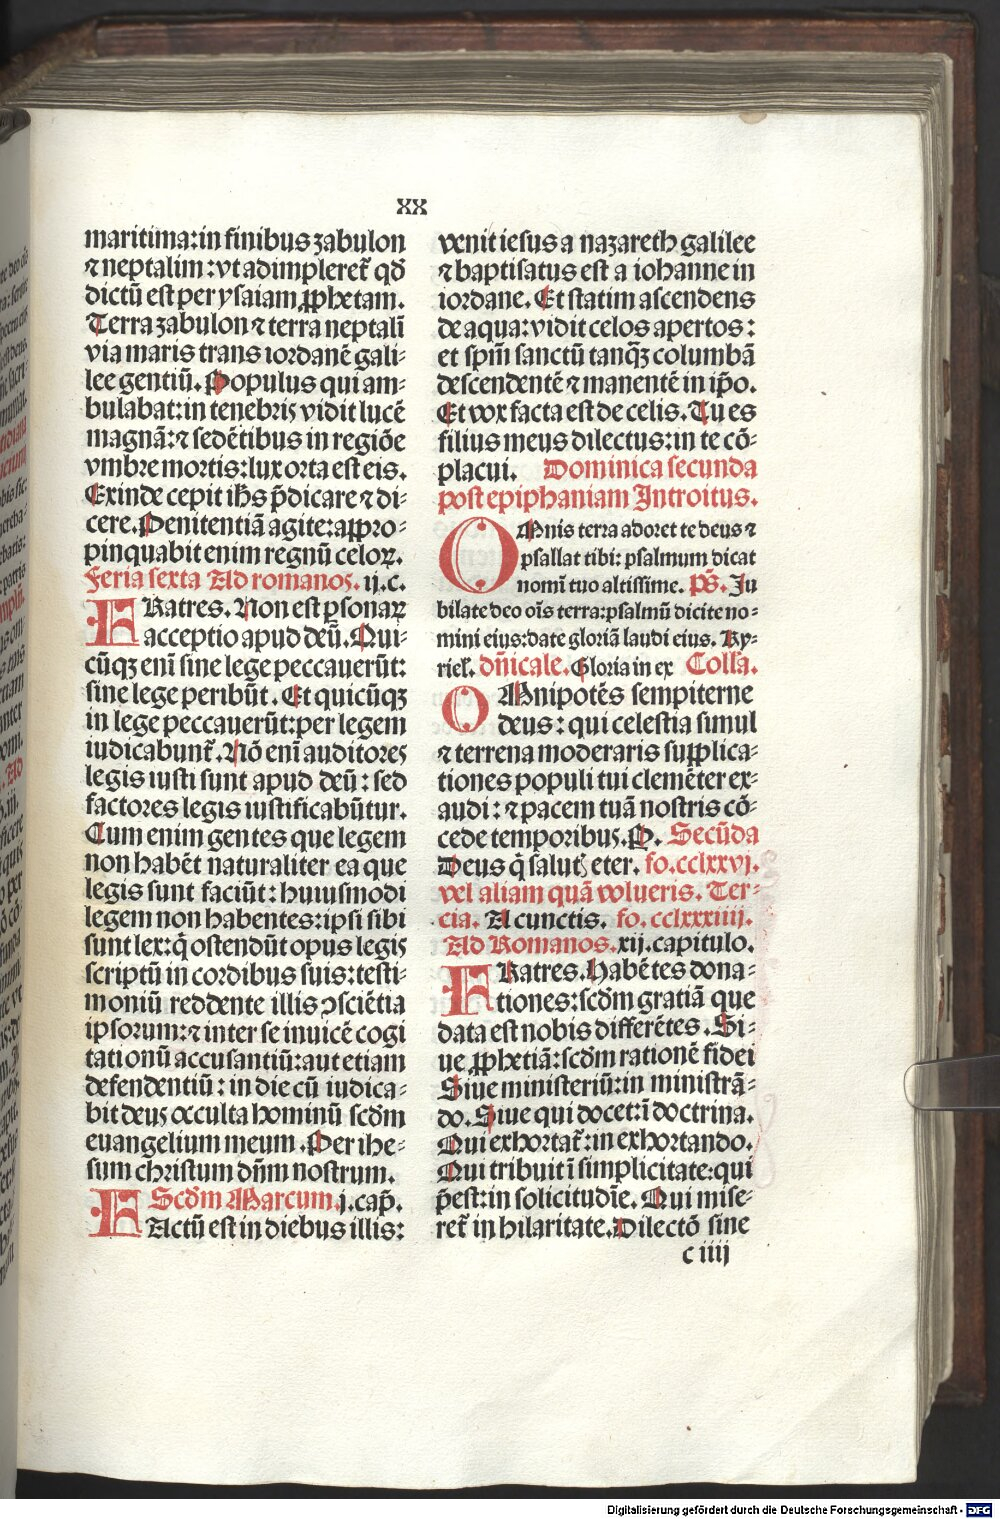 xx
maritima: in finibus zabulon
⁊ neptalim: vt adimpleret᷑ qd̄
dictū est per ysaiam ꝓphetam.
Terra zabulon ⁊ terra neptalī
via maris trans iordanē gali-
lee gentiū. Populus qui am-
bulabat: in tenebris vidit lucē
magnā: ⁊ sedētibus in regiōe
vmbre mortis: lux orta est eis.
Exinde cepit ihs̄ p̄dicare ⁊ di-
cere. Penitentiā agite: appro-
pinquabit enim regnū celoꝝ.
Feria sexta Ad romanos. ij. c.
FRatres. Non est ꝑsonaꝝ
acceptio apud deū. Qui-
cūqꝫ enī sine lege peccauerūt:
sine lege peribūt. Et quicūqꝫ
in lege peccauerūt: per legem
iudicabunt᷑. Nō enī auditores
legis iusti sunt apud deū: sed
factores legis iustificabūtur.
Cum enim gentes que legem
non habēt naturaliter ea que
legis sunt faciūt: huiusmodi
legem non habentes: ipsi sibi
sunt lex: q̄ ostendūt opus legis
scriptū in cordibus suis: testi-
moniū reddente illis ꝯsciētia
ipsorum: ⁊ inter se inuicē cogi
tationū accusantiū: aut etiam
defendentiū: in die cū iudica-
bit deus occulta hominū scd̄m
euangelium meum. Per ihe-
sum christum dn̄m nostrum.
Scd̄m Marcum. j. cap̄.
FActū est in diebus illis:
venit iesus a nazareth galilee
⁊ baptisatus est a iohanne in
iordane. Et statim ascendens
de aqua: vidit celos apertos:
et spm̄ sanctū tanqꝫ columbā
descendentē ⁊ manentē in ip̄o.
Et vox facta est de celis. Tu es
filius meus dilectus: in te cō-
placui. Dominica secunda
post epiphaniam Introitus.
OMnis terra adoret te deus ⁊
psallat tibi: psalmum dicat
nomī tuo altissime. Ps̄. Ju
bilate deo oīs terra: psalmū dicite no-
mini eius: date gloriā laudi eius. Ky-
riel̄. dn̄icale. Gloria in ex Coll̄a.
OMnipotēs sempiterne
deus: qui celestia simul
⁊ terrena moderaris supplica-
tiones populi tui clemēter ex-
audi: ⁊ pacem tuā nostris cō-
cede temporibus. P. Secūda
Deus q̄ salutꝭ eter. fo. cclxxvj.
vel aliam quā volueris. Ter-
cia. A cunctis. fo. cclxxxiiij.
Ad Romanos. xij. capitulo.
FRatres. Habētes dona-
tiones: scd̄m gratiā que
data est nobis differētes. Si-
ue ꝓphetiā: scd̄m rationē fidei
Siue ministeriū: in ministrā-
do. Siue qui docet: ī doctrina.
Qui exhortat᷑: in exhortando.
Qui tribuit ī simplicitate: qui
p̄est: in solicitudīe. Qui mise-
ret᷑ in hilaritate. Dilectō sine
c iiij
Digitalisierung gefördert durch die Deutsche Forschungsgemeinschaft - DFG